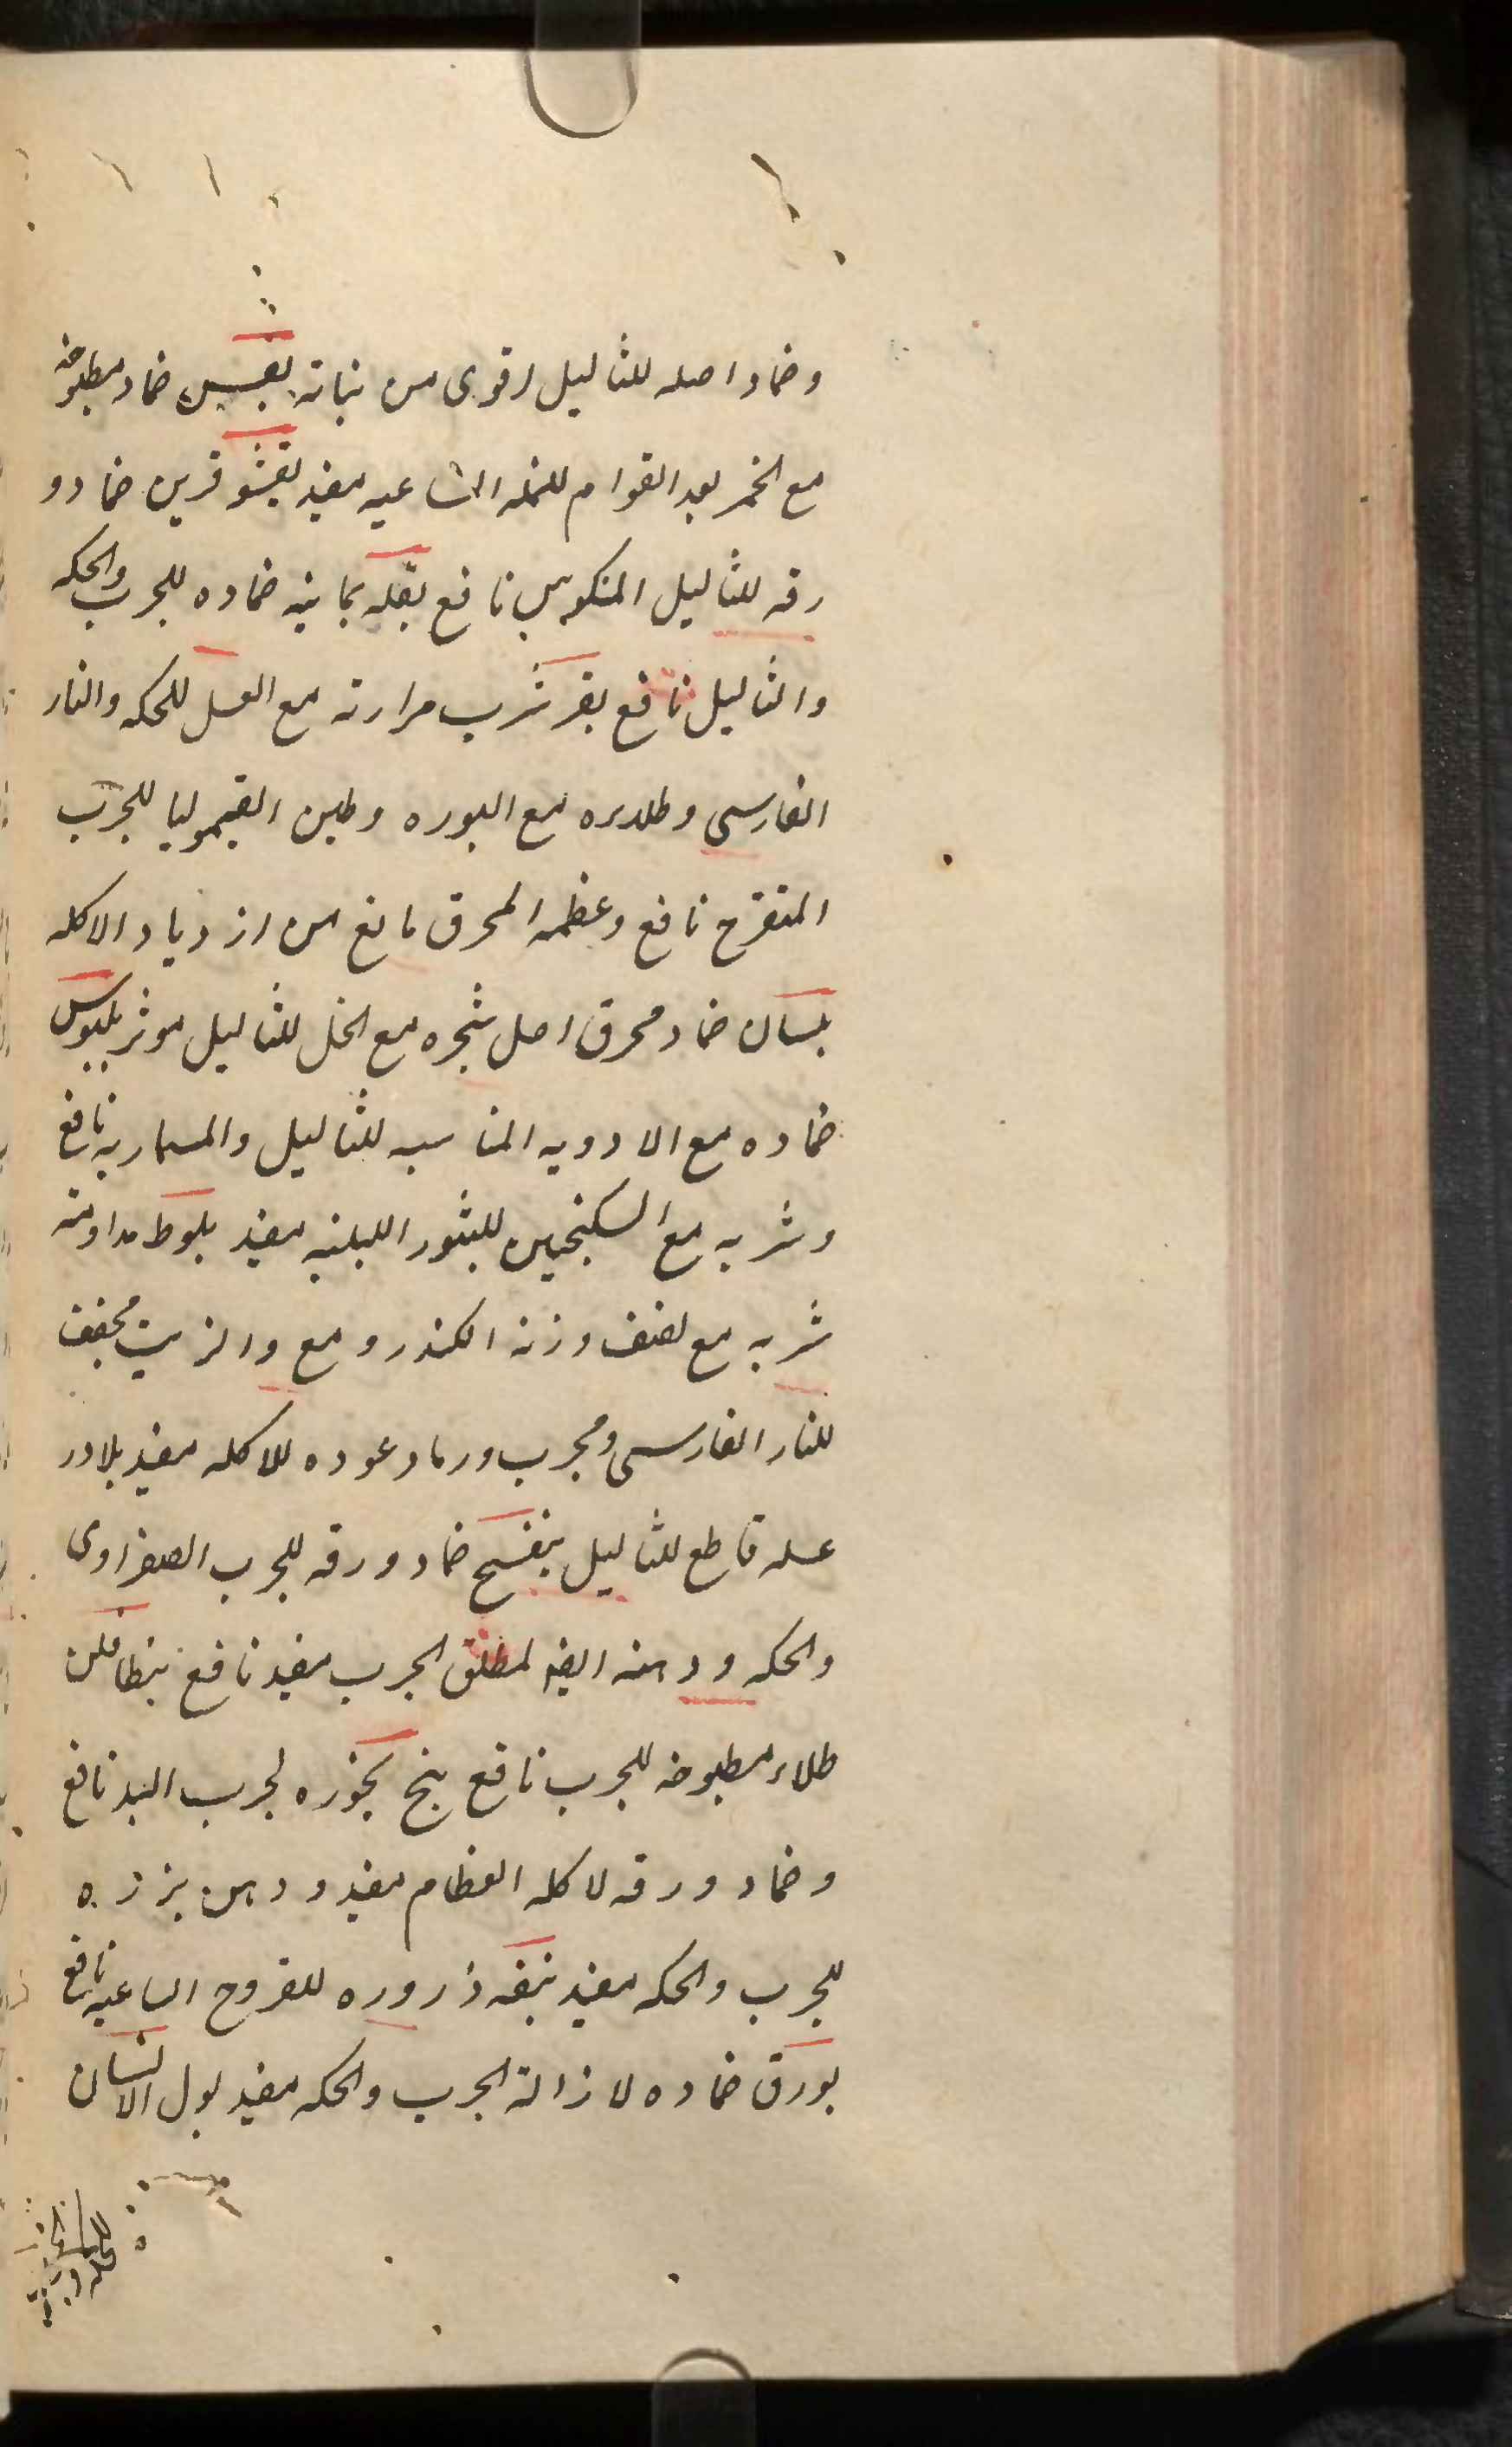 وضماد اصله للثاليل اقوى من نباته بقبس ضماد مطبوخه
مع الخمر بعد القوام للنمله الساعيه مفيد بقيشو قرين ضماد و
رقه للثاليل المنكوس نافع بقله يمانيه ضماده للجرب والحكه
والثاليل نافع بقر شرب مرارته مع العسل للحكه والنار
الفارسى مع البوره وطين القيموليا للجرب
المتقرح نافع وعظمه المحرق مانع من ازدياد الاكله
بلسان ضماد محرق اصل شجره مع الخل للثاليل موثر بلبوس
ضماده مع الادويه المناسبه للثاليل والمسماريه نافع
وشربه مع السكنجبين للبثور اللبنيه مفيد بلوط مداومة
شربه مع نصف وزنه الكندر ومع والزيت مجفف
للنار الفارسى ومجرب ورماد عوده للاكله مفيد بلادر
عسله قاطع للثاليل بنفسج ضماد ورقه للجرب الصفراوى
والحكه ودهنه ايضا لمطلق الجرب مفيد نافع بنطافلن
طلاء مطبوخه للجرب نافع بنج بخوره لجرب اليد نافع
وضماد ورقه لاكله العظام مفيد ودهن بزره
للجرب والحكه مفيد بنقه ذروره للقروح الساعيه نافع
بورق ضماده لازالة الجرب والحكه مفيد بول الانسان